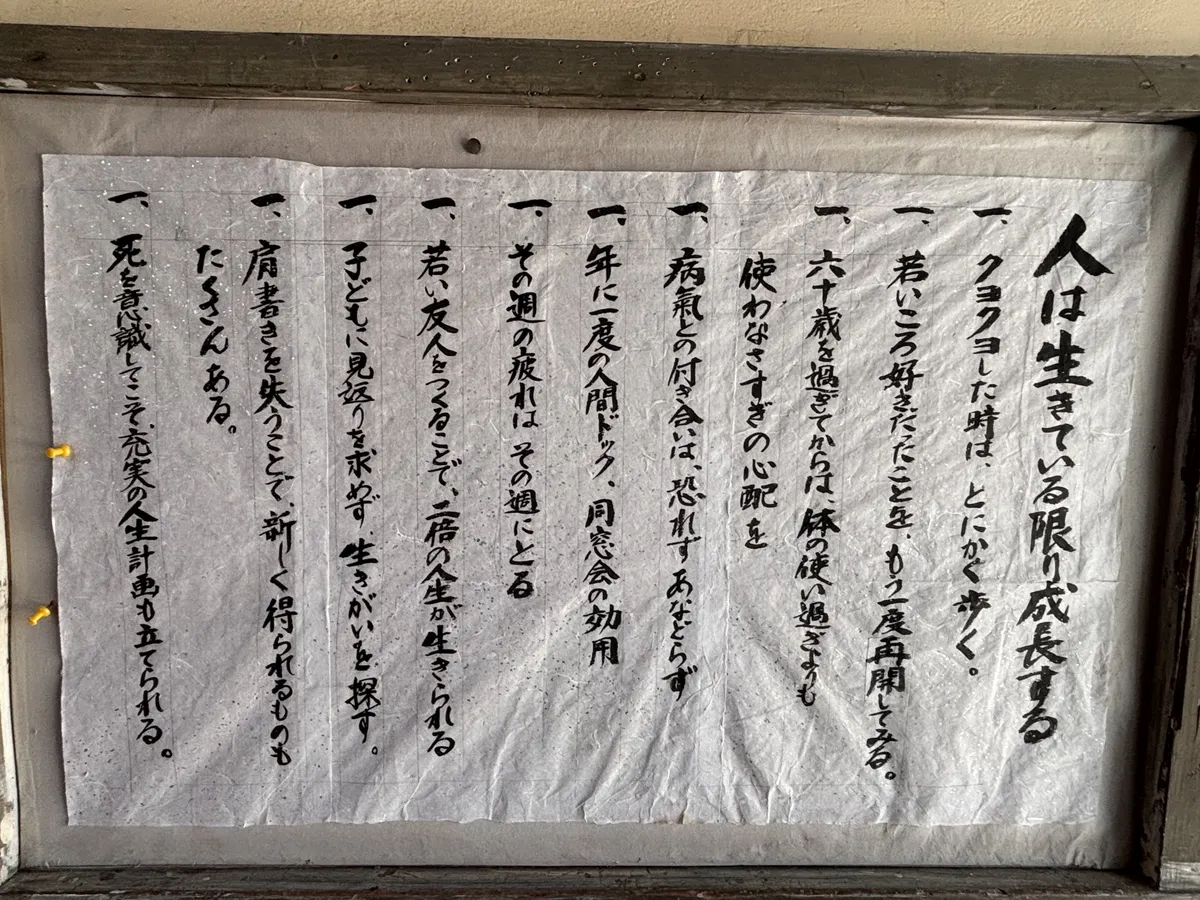 人は生きている限り成長する
一、クヨクヨした時は、とにかく歩く。
一、若いころ好きだたことを、もう一度再開してみる。
一、六十歳を過ぎてからは、体の使い過ぎよりも
使わなさすぎの心配を
一、病氣との付き合いは、恐れず あなどらず
一、年に一度の人間ドック、同窓会の効用
一、その週の疲れは その週にとる
一、若い友人をつくることで、二倍の人生が生きられる
一、子どもに見返りを求めず、生きがいを探す。
一、肩書きを失うことで、新しく得られるものも
たくさんある。
一、死を意識してこそ、充実の人生計画も立てられる。